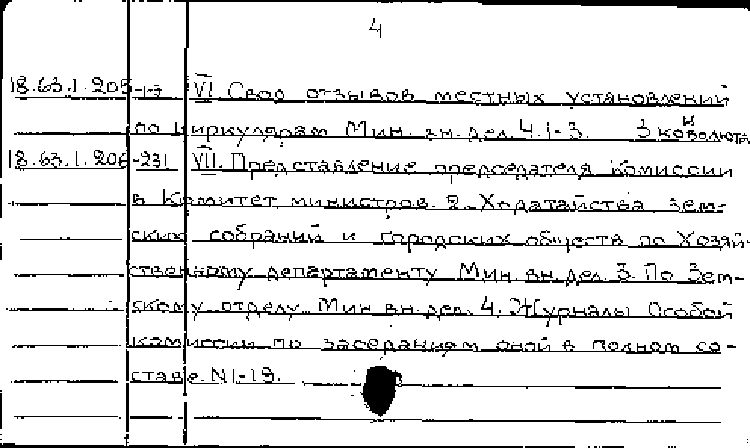 4
18.63.1.205-1-3 VI Свод отзывов местных установлений
по циркулярам Мин. вн. дел. Ч.1-3. 3 коволюта
18.63.1.206-231 VII. Представление председателя Комиссии
в Комитет министров. 2. Ходатайства зем-
ских собраний и городских обществ по Хозяй-
ственному департаменту Мин. вн. дел. 3. По Зем-
скому отделу Мин. вн. дел. 4. Журналы Особой
комиссии по заседаниям оной в полном со-
ставе. N1-19.